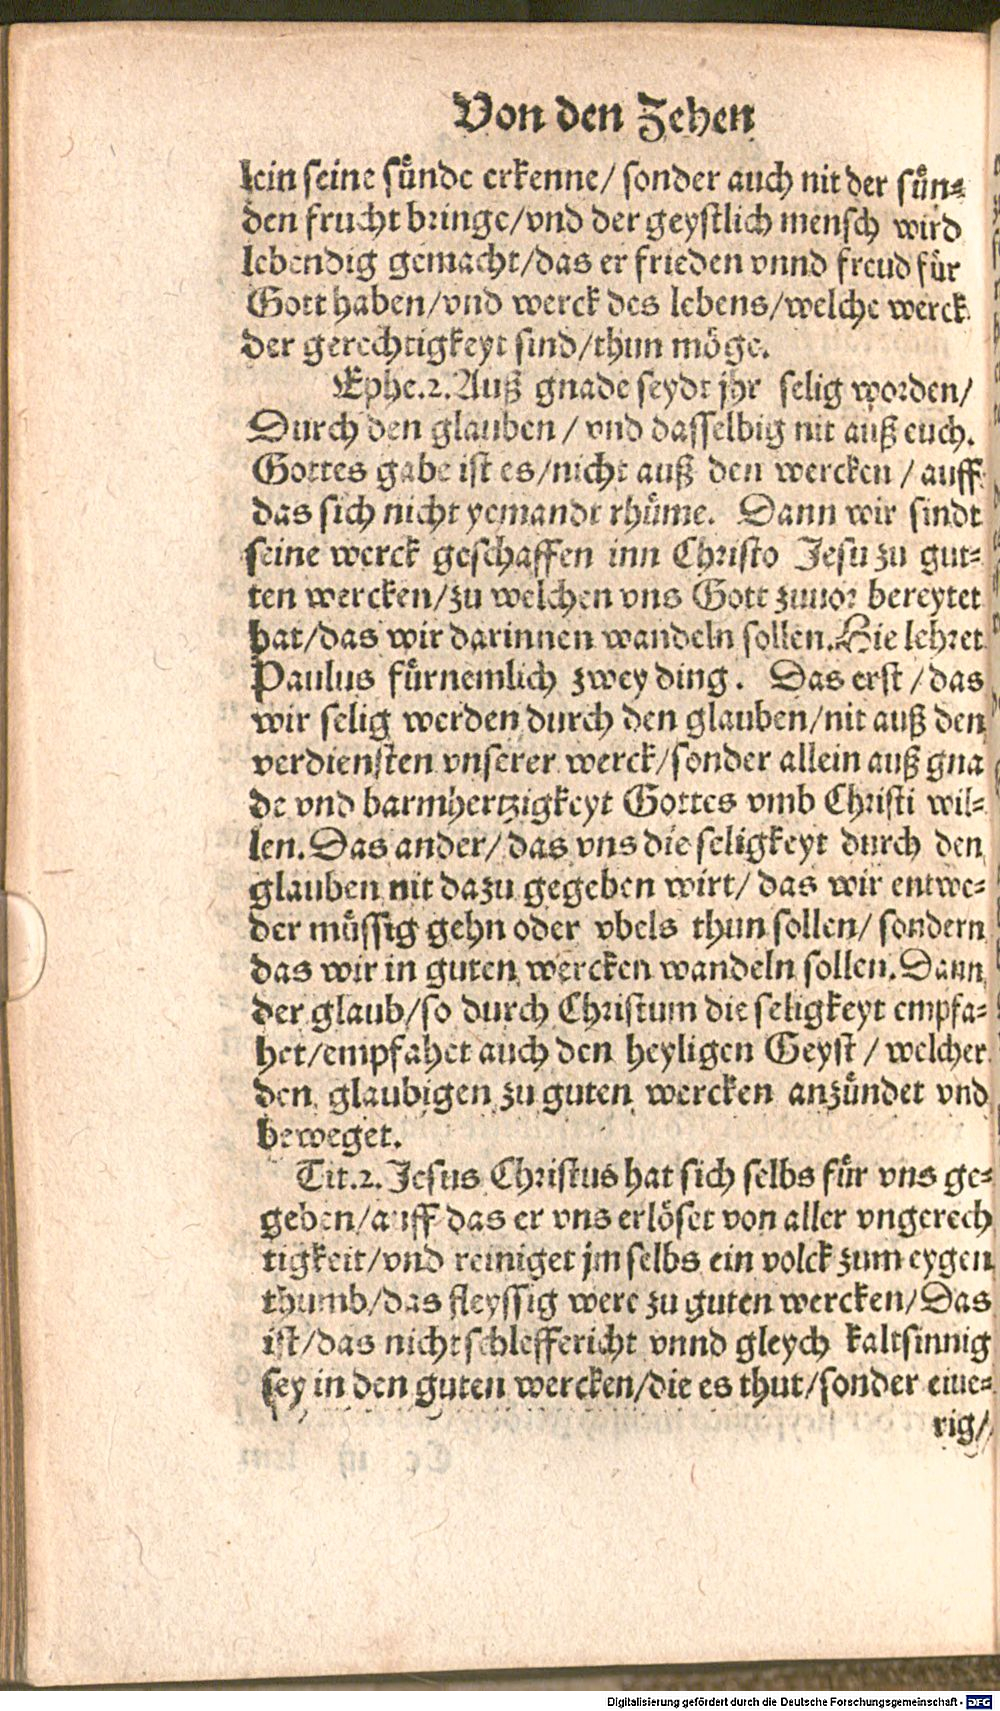 Von den Zehen
lein seine sünde erkenne/ sonder auch nit der sün⸗
den frucht bringe/vnd der geystlich mensch wird
lebendig gemacht/das er frieden vnnd freud für
Gott haben/vnd werck des lebens/welche werck
der gerechtigkeyt sind/thun möge.
Ephe.2. Auß gnade seydt jhr selig worden/
Durch den glauben / vnd dasselbig nit auß euch.
Gottes gabe ist es/nicht auß den wercken / auff
das sich nicht yemandt rhüme. Dann wir sindt
seine werck geschaffen inn Christo Jesu zu gut⸗
ten wercken/zu welchen vns Gott zuuor bereytet
hat/das wir darinnen wandeln sollen. Hie lehret
Paulus fürnemlich zwey ding. Das erst / das
wir selig werden durch den glauben/nit auß den
verdiensten vnserer werck/sonder allein auß gna
de vnd barmhertzigkeyt Gottes vmb Christi wil⸗
len. Das ander/ das vns die seligkeyt durch den
glauben nit dazu gegeben wirt/ das wir entwe⸗
der müssig gehn oder vbels thun sollen/ sondern
das wir in guten wercken wandeln sollen. Dann
der glaub/so durch Christum die seligkeyt empfa⸗
het/empfahet auch den heyligen Geyst / welcher
den glaubigen zu guten wercken anzündet vnd
beweget.
Tit.2. Jesus Christus hat sich selbs für vns ge⸗
geben/auff das er vns erlöset von aller vngerech
tigkeit/vnd reiniget jm selbs ein volck zum eygen
thumb/das fleyssig were zu guten wercken/Das
ist/das nicht schleffericht vnnd gleych kaltsinnig
sey in den guten wercken/die es thut/sonder eiue⸗
rig/
Digitalisierung gefördert durch die Deutsche Forschungsgemeinschaft - DFG